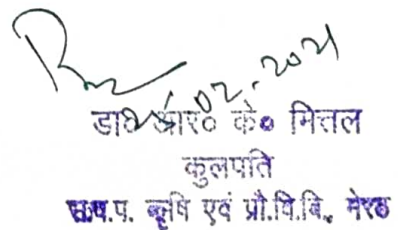 02.2021
डा० आर० के० मित्तल
कुलपति
स.व.प. कृषि एवं प्रौ.वि.वि. मेरठ